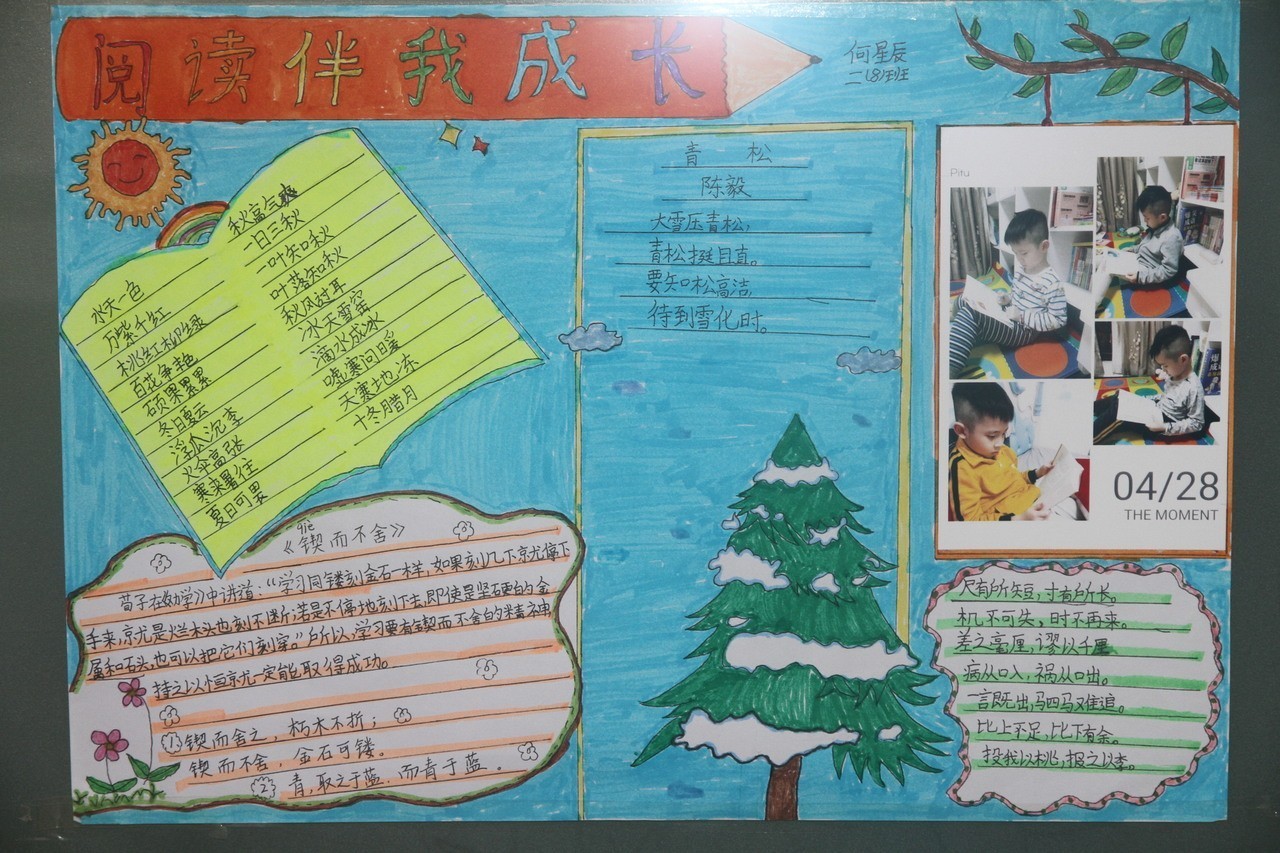 阅读伴我成长
何星辰
二(8)班
水天一色
万紫千红
桃红柳绿
百花争艳
硕果累累
冬日夏云
浮瓜沉李
火伞高张
寒来暑往
夏日可畏
秋高气爽
一日三秋
一叶知秋
叶落知秋
秋风过耳
冰天雪窖
滴水成冰
嘘寒问暖
天寒地冻
十冬腊月
青松
陈毅
大雪压青松,
青松挺且直。
要知松高洁,
待到雪化时。
Pitu
04/28
THE MOMENT
qiè
《锲而不舍》
荀子在《劝学》中讲道:“学习同镂刻金石一样,如果刻几下就停下
手来,就是烂木头也刻不断;若是不停地刻下去,即使是坚硬的金
属和石头,也可以把它们刻穿。”所以,学习要有锲而不舍的精神,
持之以恒就一定能取得成功。
(1)锲而舍之,朽木不折;
锲而不舍,金石可镂。
(2)青,取之于蓝,而青于蓝。
尺有所短,寸有所长。
机不可失,时不再来。
差之毫厘,谬以千里。
病从口入,祸从口出。
一言既出,驷马难追。
比上不足,比下有余。
投我以桃,报之以李。